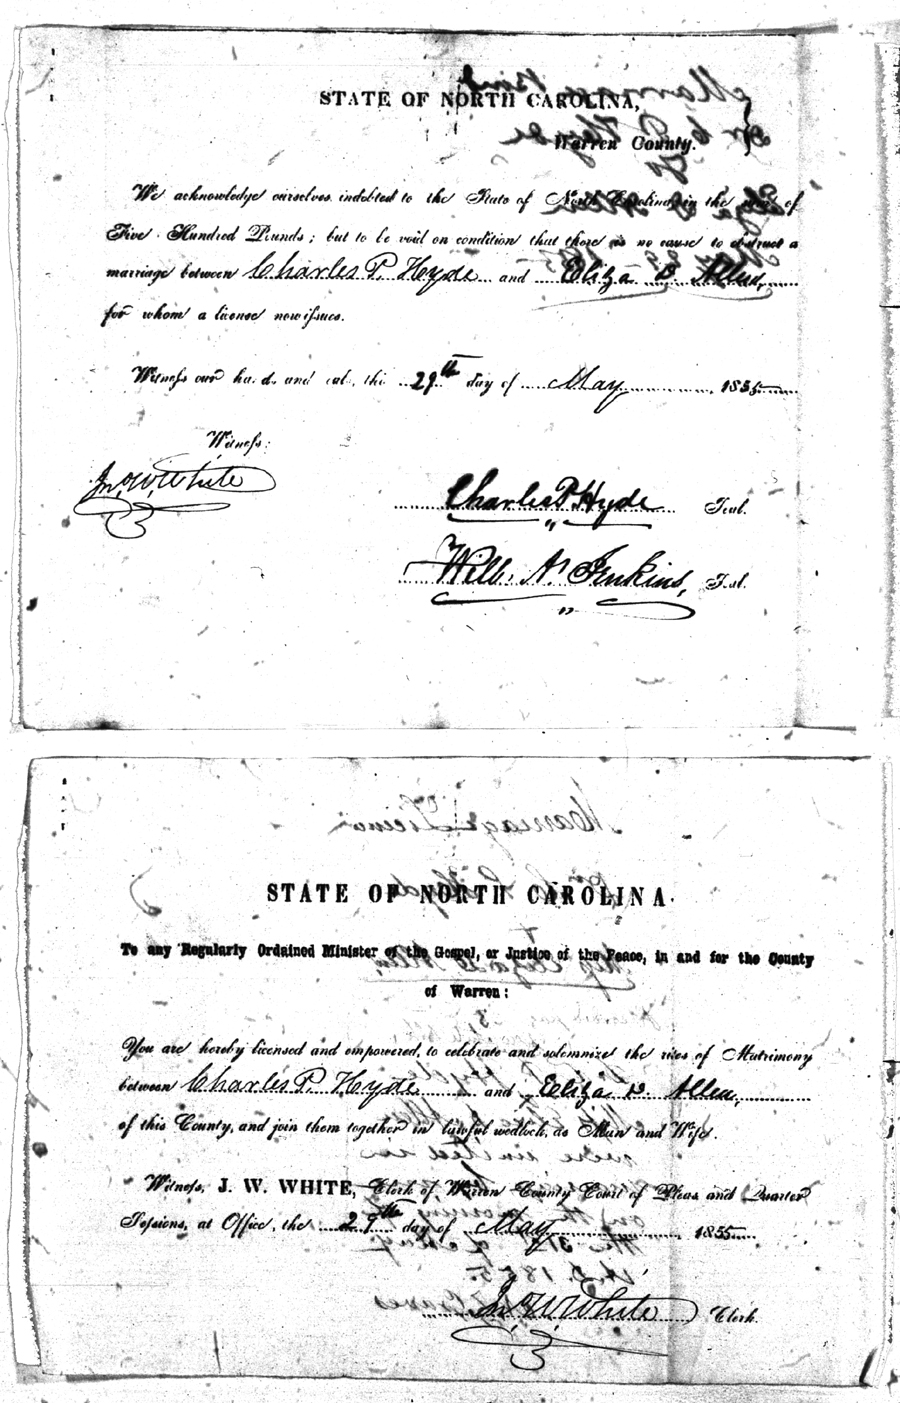 STATE OF NORTH CAROLINA,
Warren County.
We acknowledge ourselves indebted to the State of North Carolina in the sum of
Five Hundred Pounds; but to be void on condition that there is no cause to obstruct a
marriage between Charles P. Hyde and Eliza D. Allen,
for whom a license now issues.
Witness our hands and seals, this 29th day of May, 1855
Witness:
Jno. W. White
Charles P. Hyde Seal.
Will. A. Jenkins, Seal.
Marriage
STATE OF NORTH CAROLINA.
To any Regularly Ordained Minister of the Gospel, or Justice of the Peace, in and for the County
of Warren:
You are hereby licensed and empowered, to celebrate and solemnize the rites of Matrimony
between Charles P. Hyde and Eliza D. Allen,
of this County, and join them together in lawful wedlock, as Man and Wife.
Witness, J. W. WHITE, Clerk of Warren County Court of Pleas and Quarter
Sessions, at Office, the 29th day of May 1855
Jno. W. White Clerk.